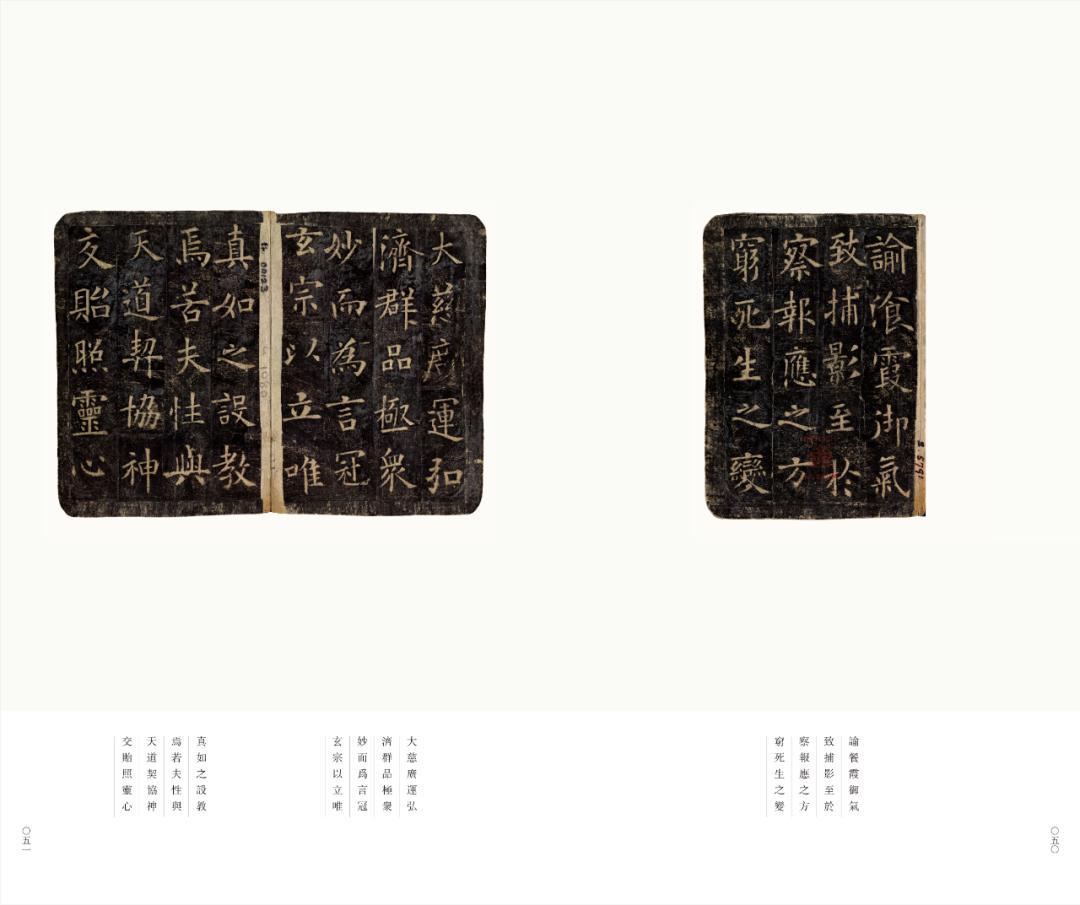 諭飡霞御氣
致捕影至於
察報應之方
窮死生之變
大慈廣運弘
濟群品極衆
妙而為言冠
玄宗以立唯
真如之設教
焉若夫性與
天道契協神
交貽照靈心
諭餐霞御氣
致捕影至於
察報應之方
窮死生之變
大慈廣運弘
濟群品極衆
妙而爲言冠
玄宗以立唯
真如之設教
焉若夫性與
天道契協神
交貽照靈心
〇五〇
〇五一